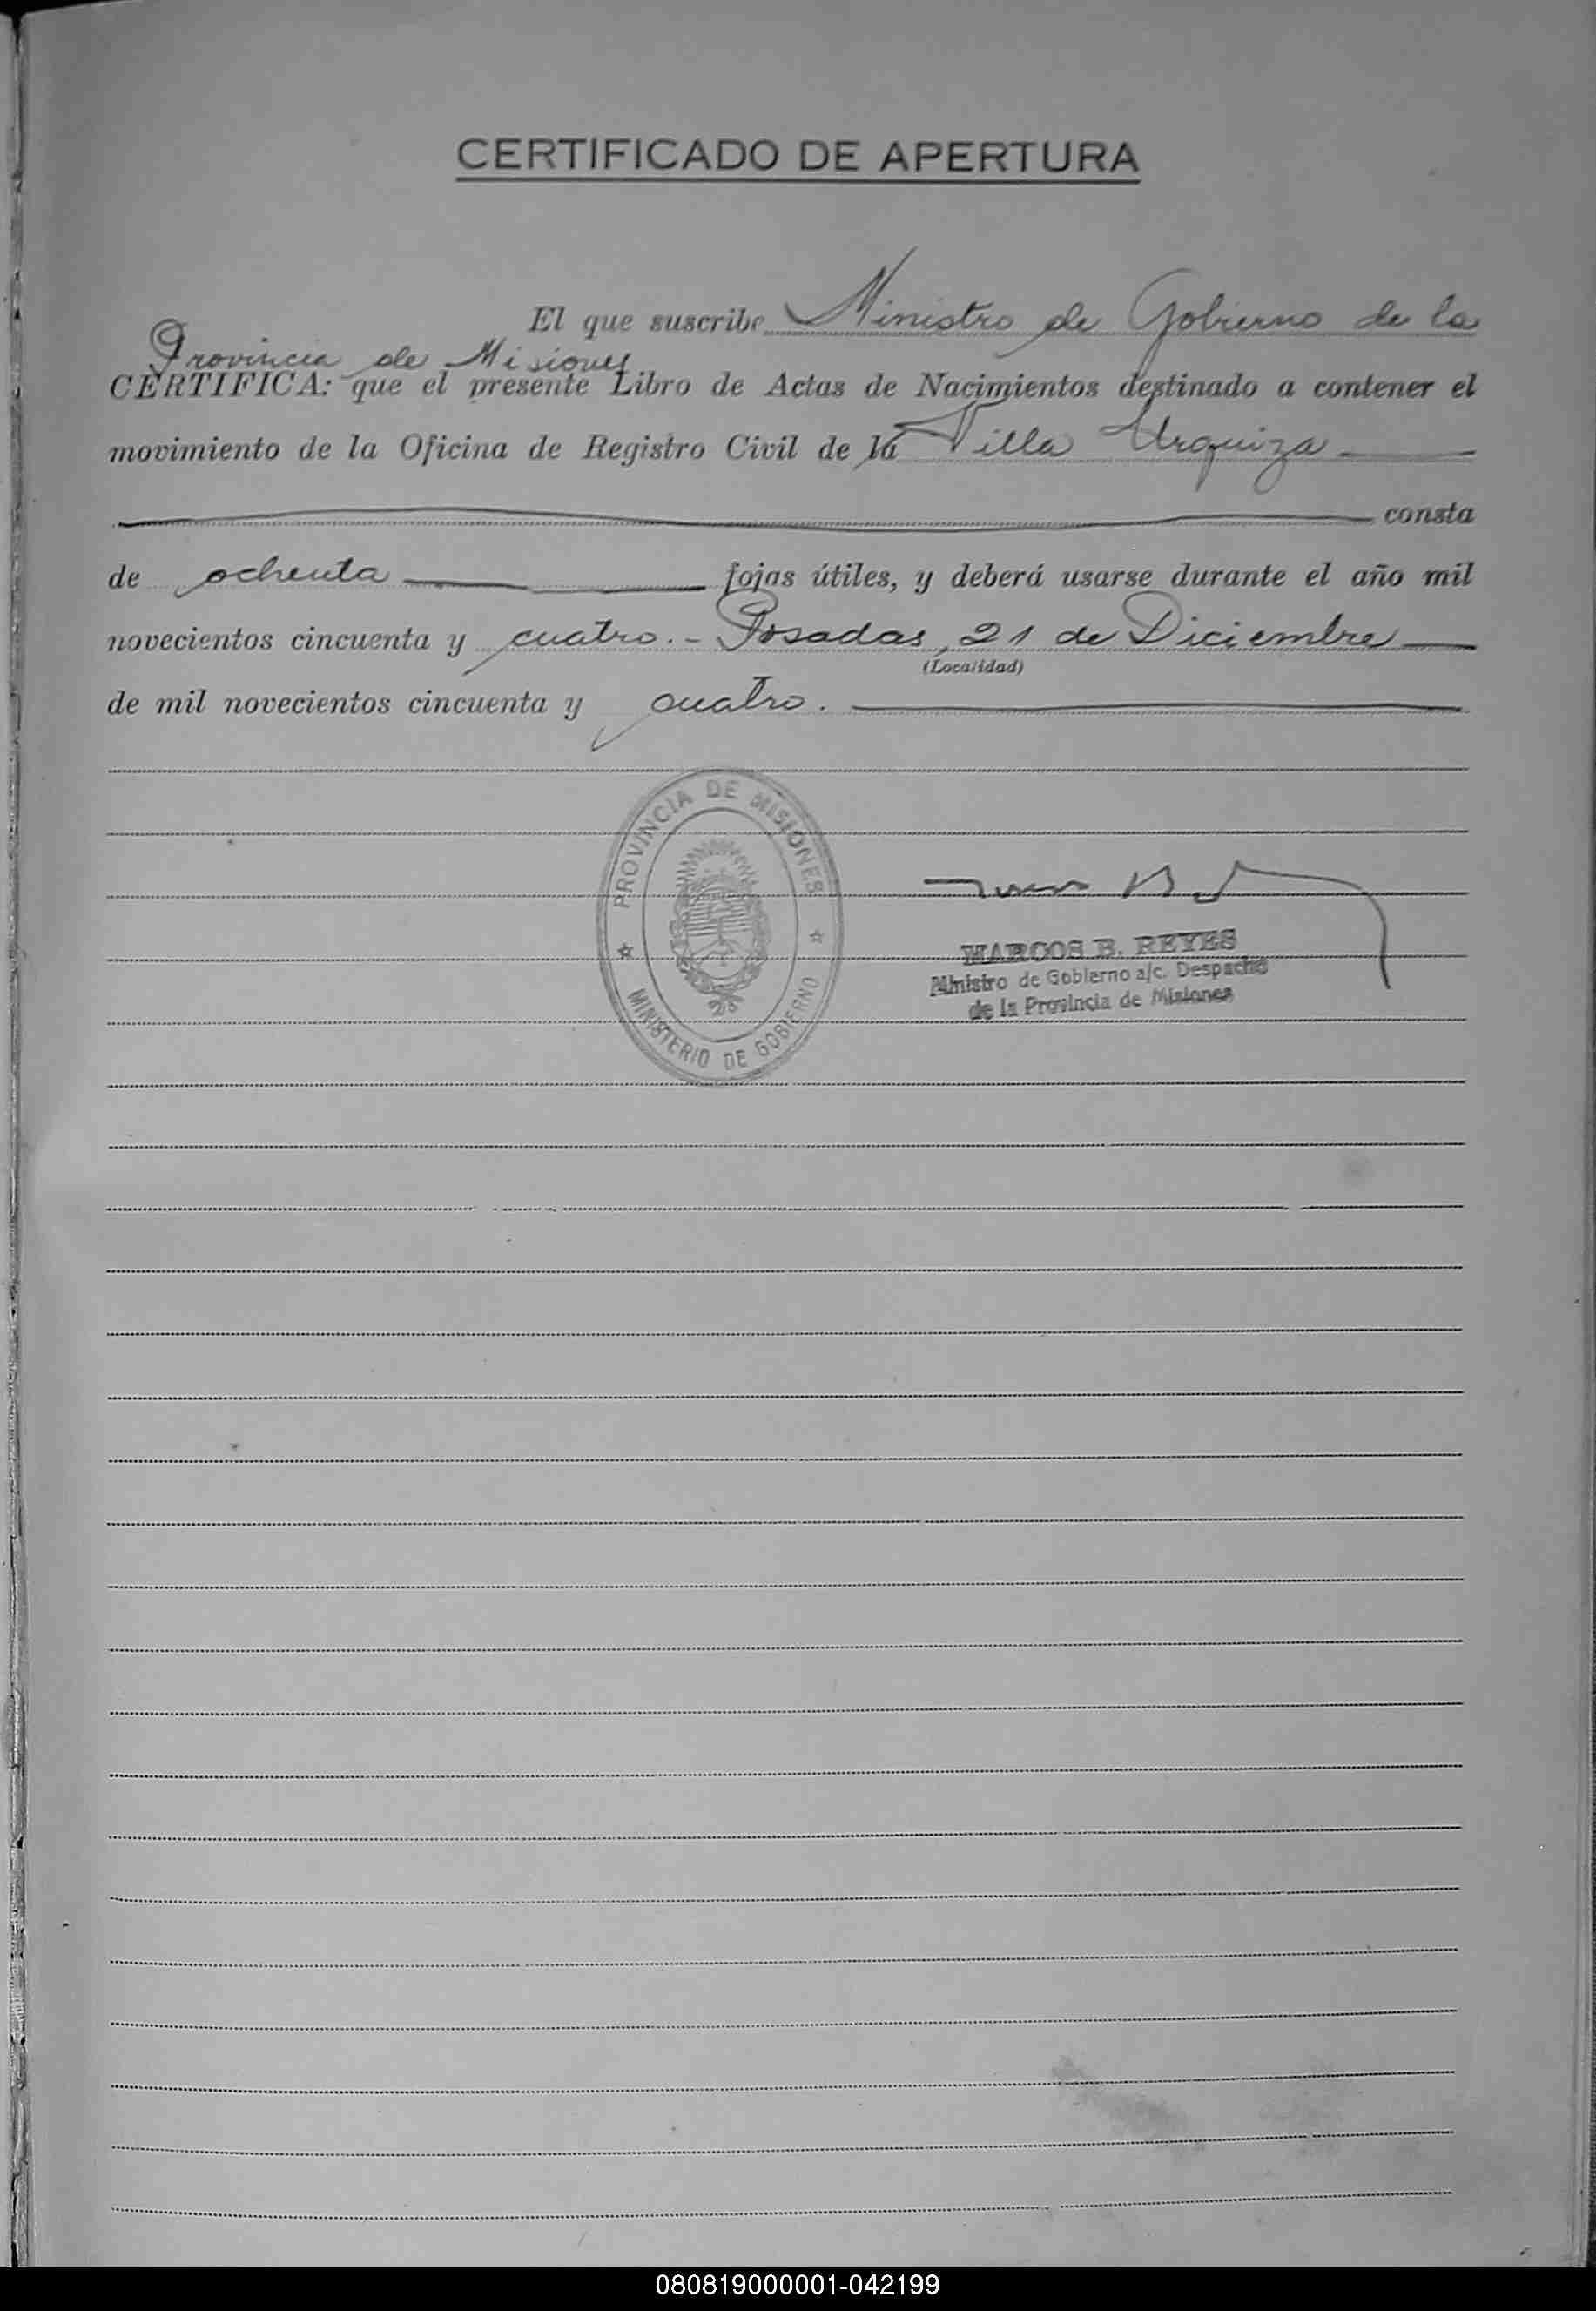 CERTIFICADO DE APERTURA
El que suscribe Ministro de Gobierno de la
Provincia de Misiones
CERTIFICA: que el presente Libro de Actas de Nacimientos destinado a contener el
movimiento de la Oficina de Registro Civil de la Villa Urquiza
consta
de ochenta fojas útiles, y deberá usarse durante el año mil
novecientos cincuenta y cuatro.- Posadas, 21 de Diciembre
(Localidad)
de mil novecientos cincuenta y cuatro.
PROVINCIA DE MISIONES
MINISTERIO DE GOBIERNO
MARCOS B. REYES
Ministro de Gobierno a/c. Despacho
de la Provincia de Misiones
080819000001-042199